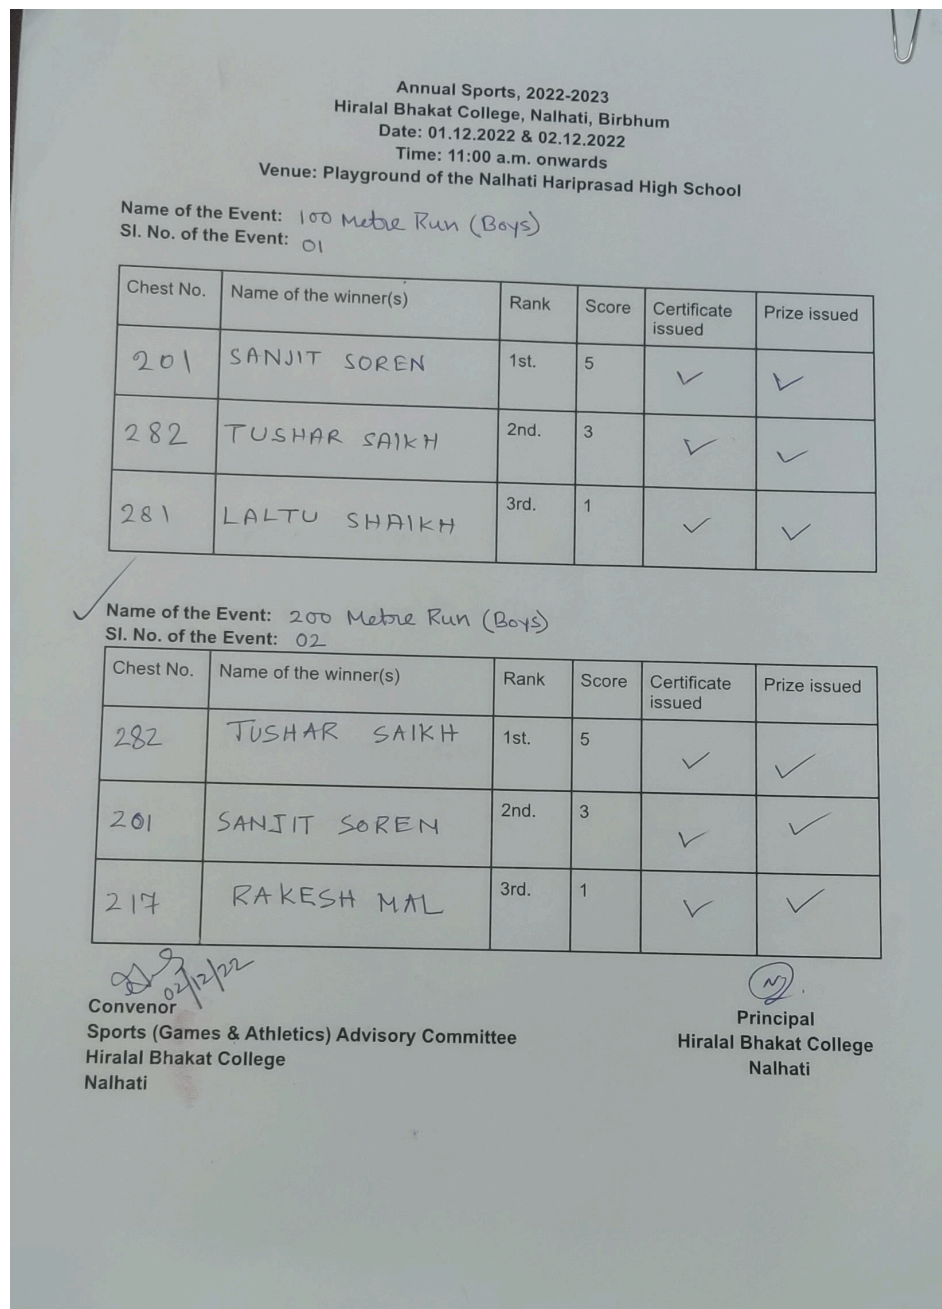 Annual Sports, 2022-2023
Hiralal Bhakat College, Nalhati, Birbhum
Date: 01.12.2022 & 02.12.2022
Time: 11:00 a.m. onwards
Venue: Playground of the Nalhati Hariprasad High School
Name of the Event: 100 Metre Run (Boys)
Sl. No. of the Event: 01
Chest No. Name of the winner(s) Rank Score Certificate issued Prize issued
201 SANJIT SOREN 1st. 5 ✓ ✓
282 TUSHAR SAIKH 2nd. 3 ✓ ✓
281 LALTU SHAIKH 3rd. 1 ✓ ✓
Name of the Event: 200 Metre Run (Boys)
Sl. No. of the Event: 02
Chest No. Name of the winner(s) Rank Score Certificate issued Prize issued
282 TUSHAR SAIKH 1st. 5 ✓ ✓
201 SANJIT SOREN 2nd. 3 ✓ ✓
217 RAKESH MAL 3rd. 1 ✓ ✓
02/12/22
Convenor
Sports (Games & Athletics) Advisory Committee
Hiralal Bhakat College
Nalhati
Principal
Hiralal Bhakat College
Nalhati